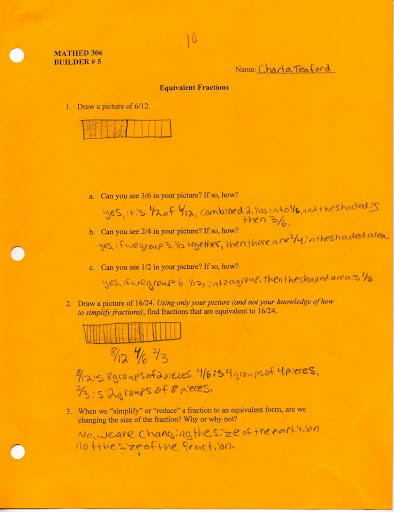 10
MATHED 306
BUILDER # 5
Name: Charla Teaford
Equivalent Fractions
1. Draw a picture of 6/12.
a. Can you see 3/6 in your picture? If so, how?
yes, it is 1/2 of 6/12, combined 2 1/12s into 1/6, and the shaded is
then 3/6.
b. Can you see 2/4 in your picture? If so, how?
yes, if we group 3 1/12 together, then there are 2/4 in the shaded area.
c. Can you see 1/2 in your picture? If so, how?
yes, if we group 6 1/12s into a group, then the shaded area is 1/2.
2. Draw a picture of 16/24. Using only your picture (and not your knowledge of how
to simplify fractions), find fractions that are equivalent to 16/24.
8/12 4/6 2/3
8/12 is 8 groups of 2 pieces. 4/6 is 4 groups of 4 pieces.
2/3 is 2 groups of 8 pieces.
3. When we "simplify" or "reduce" a fraction to an equivalent form, are we
changing the size of the fraction? Why or why not?
No, we are changing the size of the partition
not the size of the fraction.